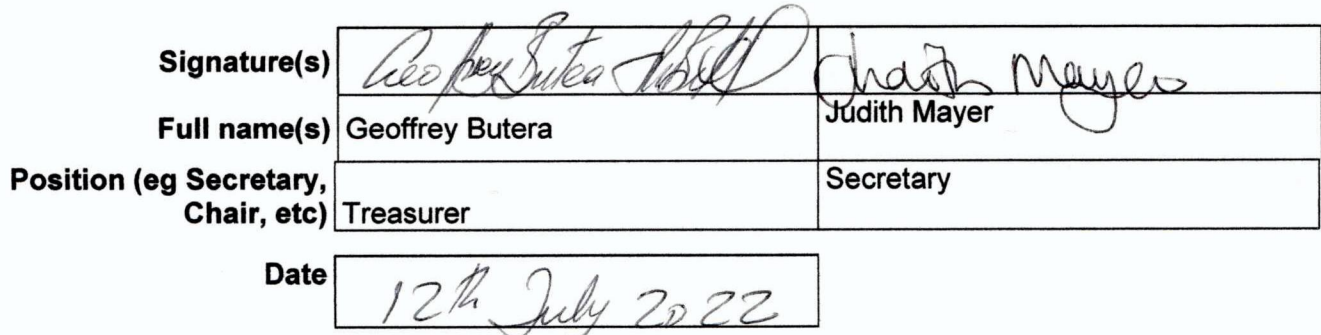 Signature(s) Geoffrey Butera Judith Mayer
Full name(s) Geoffrey Butera Judith Mayer
Position (eg Secretary, Secretary
Chair, etc) Treasurer
Date 12th July 2022